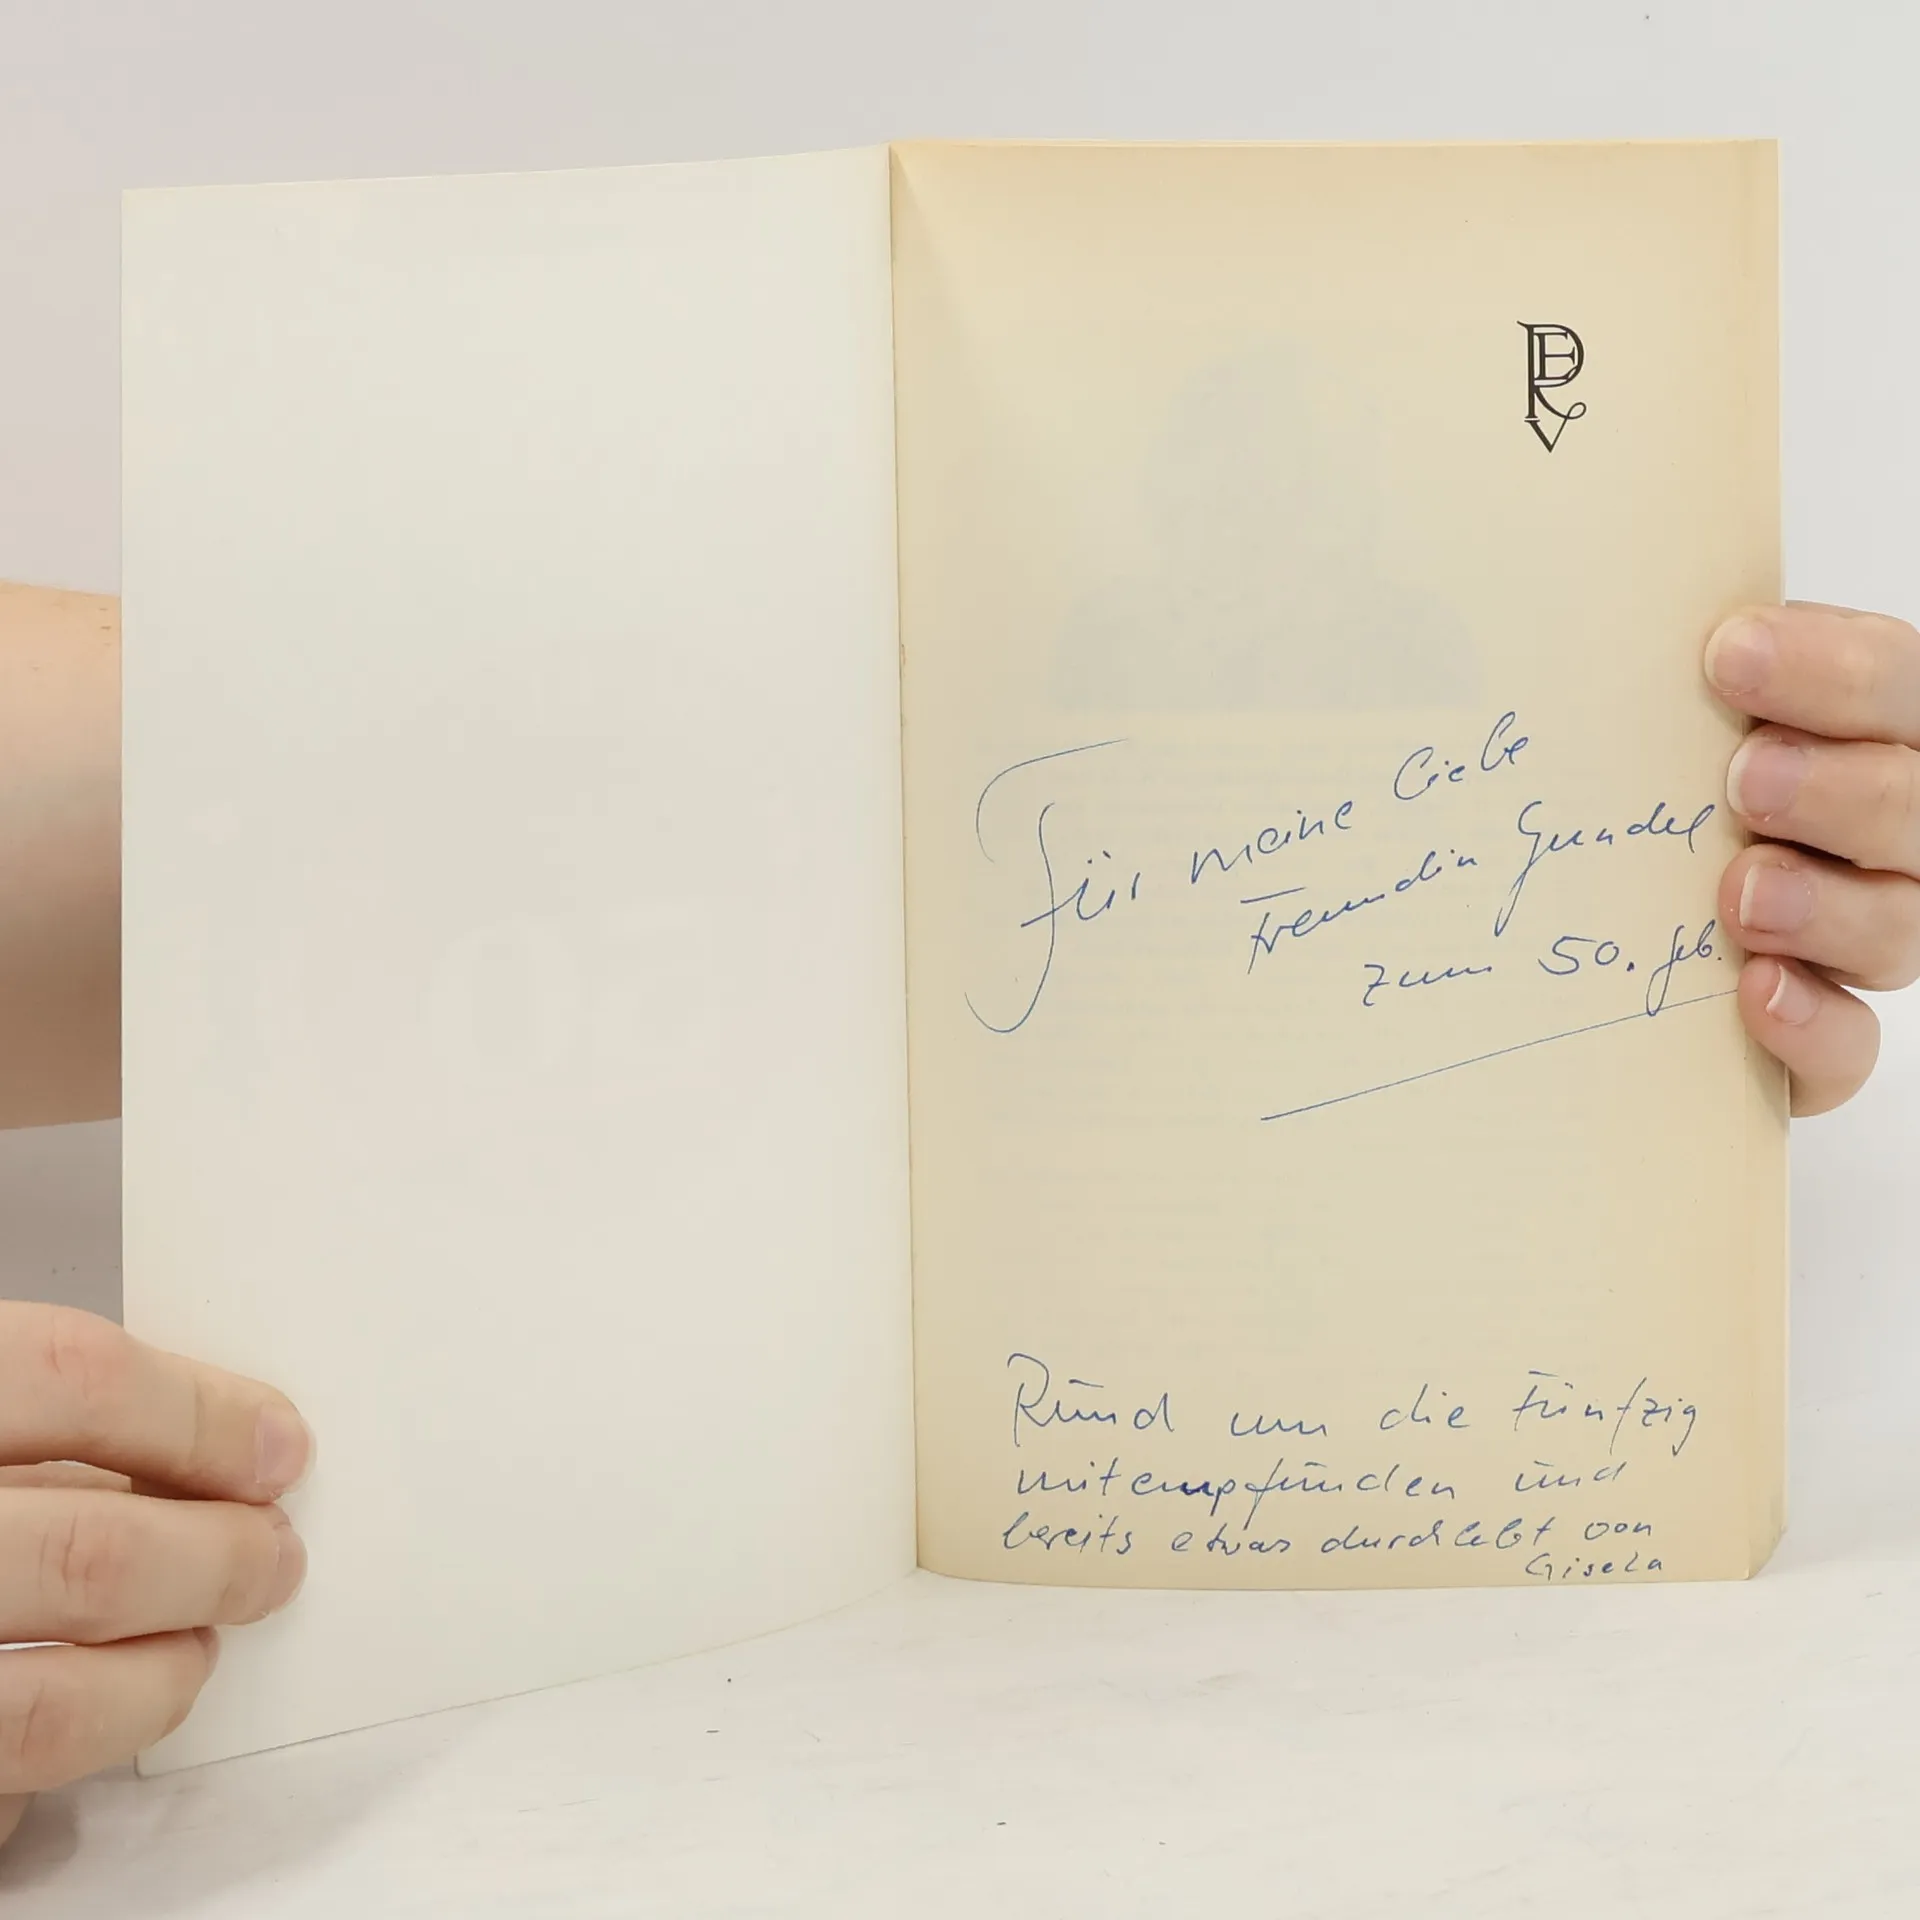 PERV
Für meine liebe
Freundin Gundel
zum 50. Geb.
Rund um die Fünfzig
mitempfunden und
bereits etwas durchlebt von
Gisela